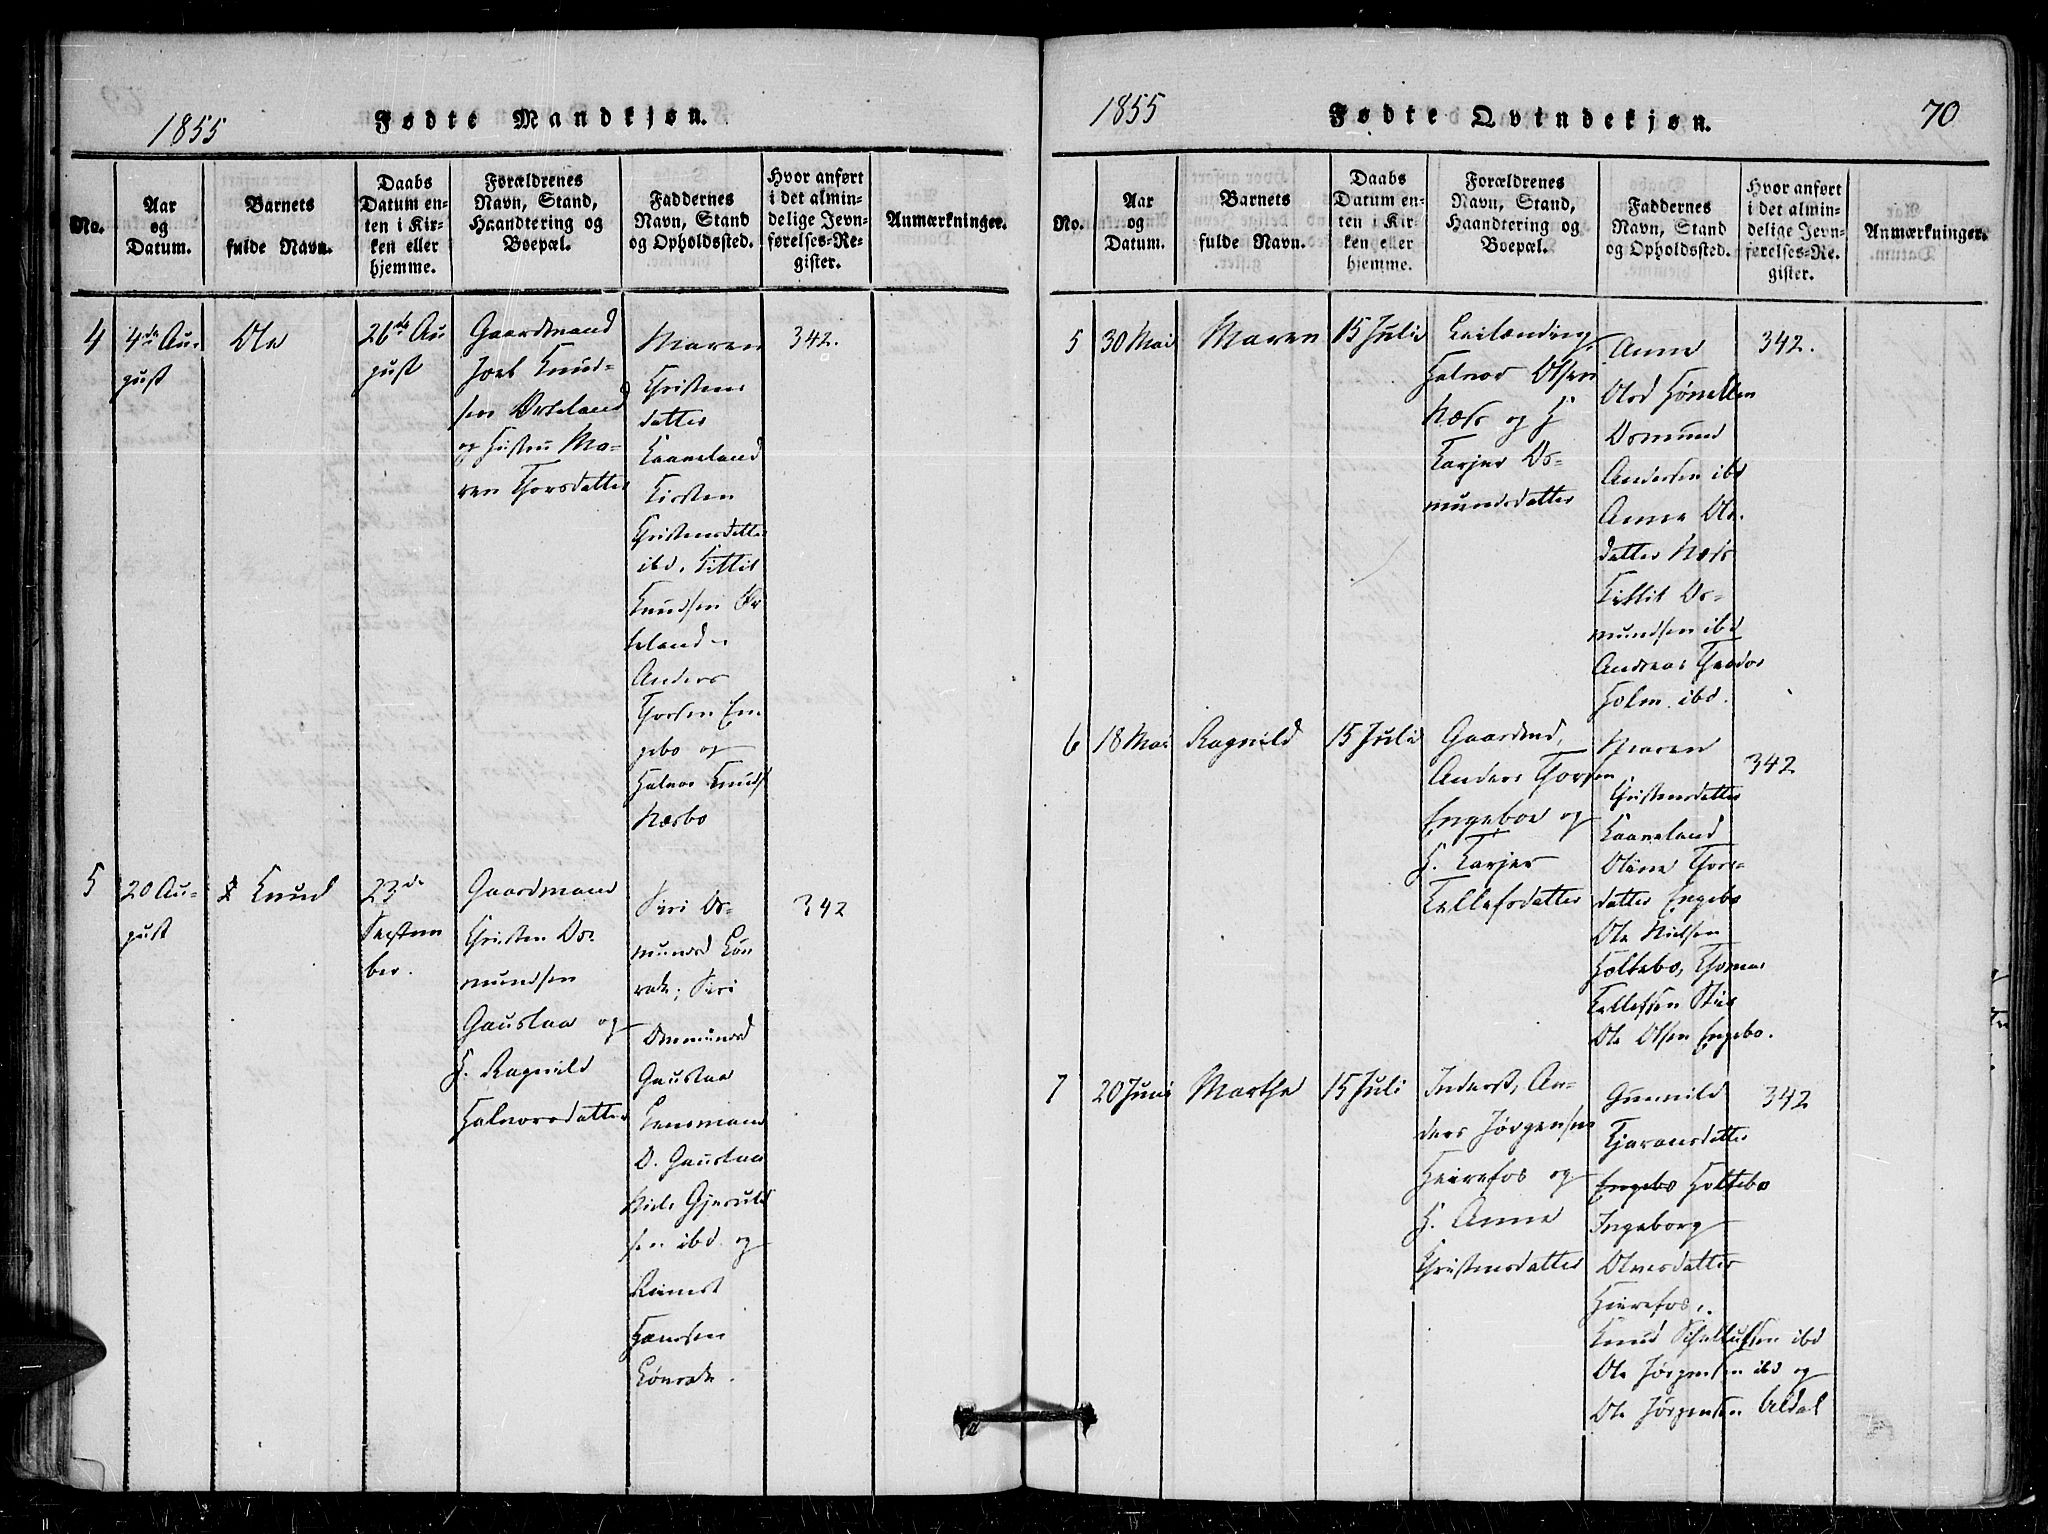 1855
Fødte Mandkjøn.
No.
Aar
og
Datum.
Barnets
fulde Navn.
Daabs
Datum en-
ten i Kir-
ken eller
hjemme.
Forældrenes
Navn, Stand,
Haandtering og
Boepæl.
Faddernes
Navn, Stand
og Opholdssted.
Hvor anført
i det almin-
delige Jevn-
førelses-Re-
gister.
Anmærkninger.
4
4de Au-
gust
Ole
26de Au
gust
Gaardmand
Joel Knud-
sen
og Hustru Ma-
ren Thorsdatter
Maren
Christens
datter
Kaaneland
Kirsten
Christensdatter
ibd, Kittil
Knudsen
Anders
Thorsen En
gebo og
Halvor Knuds
Næsbo
342.
5
20 Au-
gust
Knud
23de
Septem
ber.
Gaardmand
Christen Os-
mundsen
Gaustaa og
H. Ragnild
Halvorsdatter
Siri Os-
munsd
Siri
Osmundsd
Gaustaa
Lensmand
O. Gaustaa
Niels Gjeruld
sen ibd og
Hansen
342
1855
Fødte Qvindekjøn.
70
No.
Aar
og
Datum.
Barnets
fulde Navn.
Daabs
Datum en-
ten i Kir-
ken eller
hjemme.
Forældrenes
Navn, Stand,
Haandtering og
Boepæl.
Faddernes
Navn, Stand
og Opholdssted.
Hvor anført
i det almin-
delige Jevn-
førelses-Re-
gister.
Anmærkninger.
5
30 Mai
Maren
15 Julie
Leilænding
Halvor Olsen
Næs og H
Tarjer Os-
mundsdatter
Anne
Olsd
Osmund
Andersen ibd
Anne Ols-
datter Næs
Kittil Os-
mundsen ibd
Andreas Theodor
Holm ibd.
342.
6
18 Mai
Ragnild
15 Juli
Gaardmd,
Anders Thorsen
Engeboe og
H. Tarjer
Tellefsdatter
Maren
Christensdatter
Kaaneland
Oline Thors-
datter Engebo
Ole Nielsen
Holtebo, Thomas
Tellefsen
Ole Olsen Engebo.
342
7
20 Juni
Marthe
15 Juli
Inderst, An-
ders Jørgensen
Heirefos og
H. Anne
Christensdatter
Gunnild
Tjæransdatter
Engebo Holtebo
Ingeborg
Olvesdatter
Heirefos,
Knud ibd
Ole Jørgensen ibd og
Ole Jørgensen Uldal
342